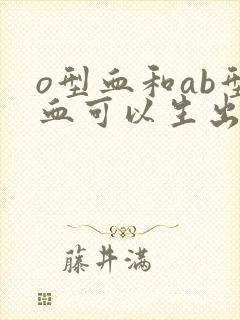 o型血和ab型
血可以生出
藤井满